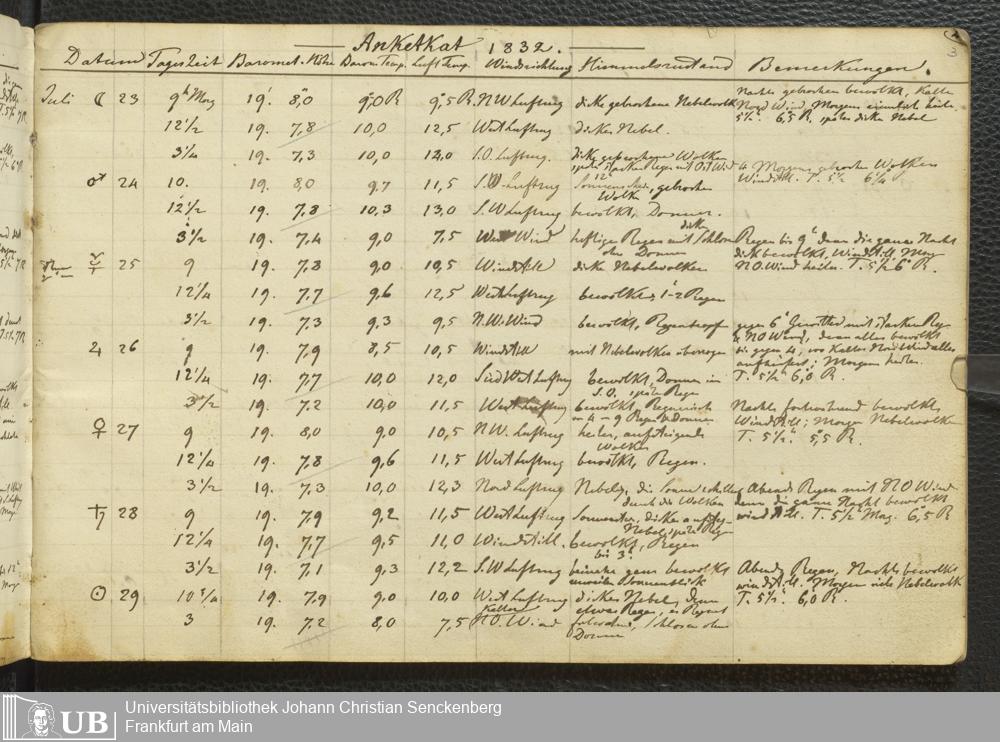 Anketkat 1832.
3
Datum Tageszeit Baromet. Höhe Barom. Temp. Luft Temp. Windrichtung Himmelszustand Bemerkungen.
Nachts gebrochen bewölkt, Kalter
Juli ☾ 23 9h Morg 19' 8,0 9,0 R 9,5 R. N.W Luftzug dicke gebrochene Nebelwolk Nord Wind, Morgens ziemlich heiter.
12 1/2 19. 7,8 10,0 12,5 West Luftzug dicker Nebel. 5½ 6,5 R, später dicke Nebel
3¼ 19. 7,3 10,0 12,0 S.O. Luftzug. dicke gebrochene Wolken
später starker Regen mit Ost Wind 4 Morgens gebroch Wolken
♂ 24 10. 19. 8,0 9,7 11,5 S.W Luftzug gebrochen Windstill. T. 5½ 6¼
Wolken
12 1/2 19. 7,8 10,3 13,0 S.W Luftzug bewölkt, Donner.
3 1/2 19. 7,4 9,0 7,5 West Wind heftiger Regen mit dicke Schlosen Regen bis 9 dann die ganze Nacht
ohne Donner dick bewölkt, Windstill, Morg
☿ 25 9 19. 7,8 9,0 10,5 Windstill dicke Nebelwolken N.O. Wind heiter. T. 5½ 6 R.
12 1/4 19. 7,7 9,6 12,5 West Luftzug bewölkt, 1-2 Regen
3 1/2 19. 7,3 9,3 9,5 N.W. Wind bewölkt, gegen 6 Gewitter mit starken Reg
& NO Wind, dann alles bewölkt
♃ 26 9 19. 7,9 8,5 10,5 Windstill mit Nebelwolken überzogen bis gegen 4, wo Kalter Nord Wind alles
aufheitert; Morgens heiter.
12 1/4 19. 7,7 10,0 12,0 Süd West Luftzug bewölkt, Donner in T. 5½ 6,0 R.
S.O. später Regen
3 1/2 19. 7.2 10,0 11,5 West Luftzug bewölkt, Nachts fortwährend bewölkt,
von 4-9 Regen & Donner Windstill; Morgen Nebelwolken
♀ 27 9 19. 8,0 9,0 10,5 N.W. Luftzug heiter, aufsteigende T. 5½ 5,5 R.
Wolken
12 1/4 19. 7,8 9,6 11,5 West Luftzug bewölkt, Regen.
3 1/2 19. 7,3 10,0 12,3 Nord Luftzug Nebelig, die Sonne Abend Regen mit NO Wind
durch die Wolken dann die ganze Nacht bewölkt
♄ 28 9 19. 7,9 9,2 11,5 West Luftzug dicke windstill. T. 5½ Morg. 6,5 R
Nebel, später Regen
12 1/4 19. 7,7 9,5 11,0 Windstill. bewölkt, Regen
bis 3.
3 1/2 19. 7,1 9,3 12,2 S.W Luftzug beinahe ganz bewölkt Abends Regen, Nachts bewölkt
zuweilen Sonnenblick windstill, Morgen viele Nebelwolk
☉ 29 10 3/4 19. 7,9 9,0 10,0 West Luftzug dicker Nebel, dann T. 5½ 6,0 R.
Kalter etwas Regen, es Regent
3 19. 7,2 8,0 7,5 NO. Wind Schlosen ohne
Donner
UB
Universitätsbibliothek Johann Christian Senckenberg
Frankfurt am Main